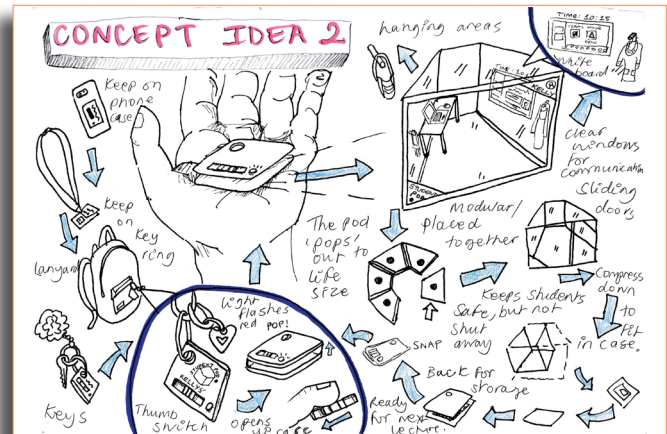 CONCEPT IDEA 2
Keep on
phone
case
Keep
on
Key
ring
lanyard
Keys
Thumb
switch
light
flashes
red POP!
opens
up case
The pod
'pops'
out to
life
size
hanging areas
TIME: 10:15
white
board
clear
windows
for
communication
Sliding
doors
Modular/
placed
together
Keeps students
Safe, but not
shut
away
Compress
down
to
fit
in case.
SNAP
Back for
storage
Ready
for next
lecture.